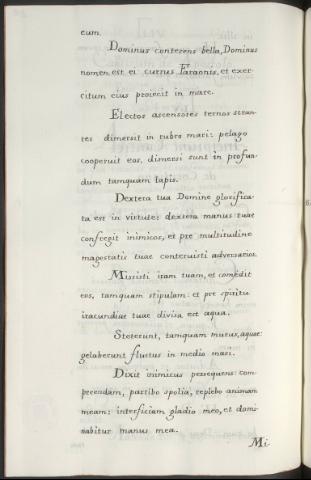 eum.
Dominus conterens bella, Dominus
nomen est ei currus Faraonis, et exer-
citum eius proiecit in mare.
Electos ascensores ternos stran-
tes dimersit in rubro mari: pelago
cooperuit eos, dimersi sunt in profun-
dum tamquam lapis.
Dextera tua Domine glorifica-
ta est in virtute: dextera manus tuae
confregit inimicos, et pre multitudine
magestatis tuae contervisti adversarios.
Missisti iram tuam, et comedit
eos, tamquam stipulam: et pre spiritu
iracundiae tuae divisa est aqua.
Steterunt, tamquam murus, aquae:
gelaberunt fluctus in medio mari.
Dixit inimicus persequens: com-
prendam, partibo spolia, replebo animam
meam: interficiam gladio meo, et domi-
nabitur manus mea.
Mi-